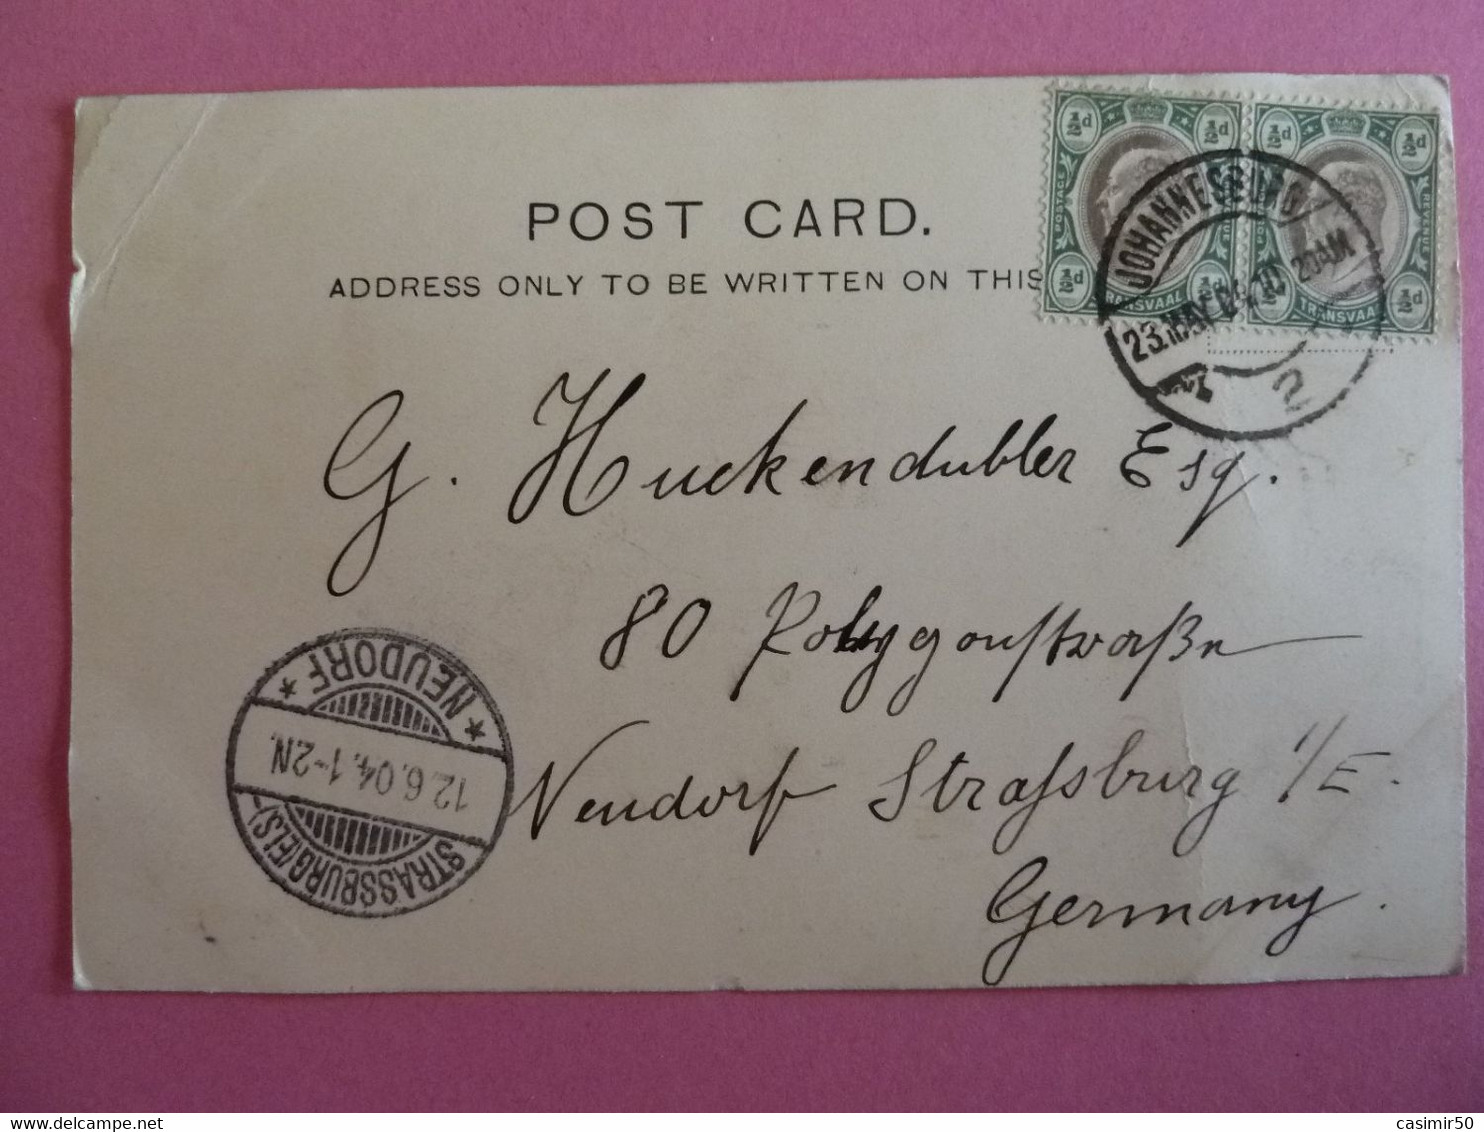 POST CARD.
ADDRESS ONLY TO BE WRITTEN ON THIS
½d ½d
POSTAGE REVENUE
½d ½d
TRANSVAAL
½d ½d
REVENUE
½d
TRANSVAAL
JOHANNESBURG
23.MAY 04.10 20AM
2
G. Huckendubler Esq.
80 Polygonstraße
Neudorf Strassburg i/E.
Germany.
STRASSBURG (ELS)-
12.6.04.1-2N.
* NEUDORF *
casimir50